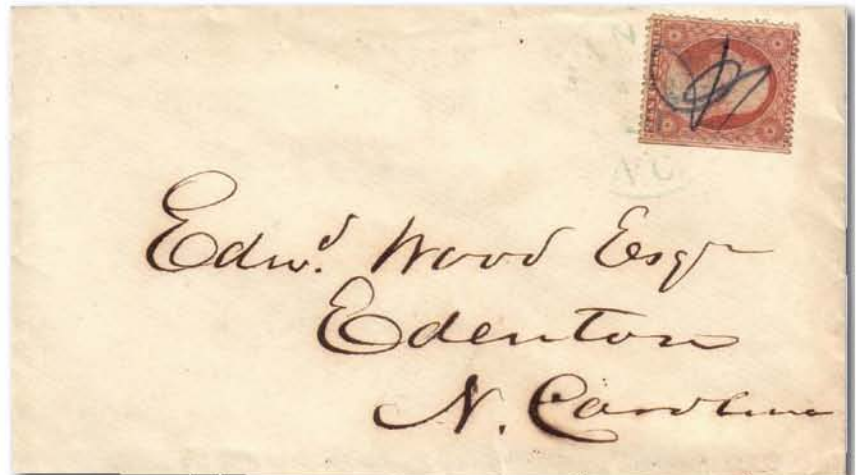 Edwd. Wood Esqr
Edenton
N. Carolina